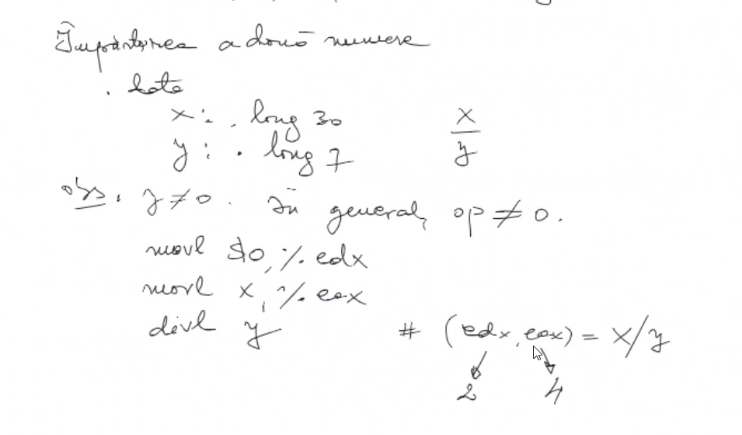 Împărțirea a două numere
.data
x: .long 30
y: .long 7
x/y
obs. y ≠ 0. În general, op ≠ 0.
movl $0, %edx
movl x, %eax
divl y # (edx, eax) = x/y
2 4